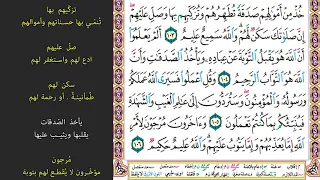 خُذْ مِنْ أَمْوَالِهِمْ صَدَقَةً تُطَهِّرُهُمْ وَتُزَكِّيهِم بِهَا وَصَلِّ عَلَيْهِمْ
إِنَّ صَلَوٰتَكَ سَكَنٌ لَّهُمْ وَٱللَّهُ سَمِيعٌ عَلِيمٌ ١٠٣ أَلَمْ يَعْلَمُوٓا۟
أَنَّ ٱللَّهَ هُوَ يَقْبَلُ ٱلتَّوْبَةَ عَنْ عِبَادِهِۦ وَيَأْخُذُ ٱلصَّدَقَٰتِ وَأَنَّ
ٱللَّهَ هُوَ ٱلتَّوَّابُ ٱلرَّحِيمُ ١٠٤ وَقُلِ ٱعْمَلُوا۟ فَسَيَرَى ٱللَّهُ عَمَلَكُمْ
وَرَسُولُهُۥ وَٱلْمُؤْمِنُونَ وَسَتُرَدُّونَ إِلَىٰ عَٰلِمِ ٱلْغَيْبِ وَٱلشَّهَٰدَةِ
فَيُنَبِّئُكُم بِمَا كُنتُمْ تَعْمَلُونَ ١٠٥ وَءَاخَرُونَ مُرْجَوْنَ لِأَمْرِ
ٱللَّهِ إِمَّا يُعَذِّبُهُمْ وَإِمَّا يَتُوبُ عَلَيْهِمْ وَٱللَّهُ عَلِيمٌ حَكِيمٌ ١٠٦
تزكيهم بها
تُنمّي بها حسناتهم وأموالهم
صل عليهم
ادع لهم واستغفر لهم
سكن لهم
طمأنينة . أو رحمة لهم
يأخذ الصدقات
يقبلها ويثيب عليها
مُرجون
مؤخّرون لا يُقطع لهم بتوبة